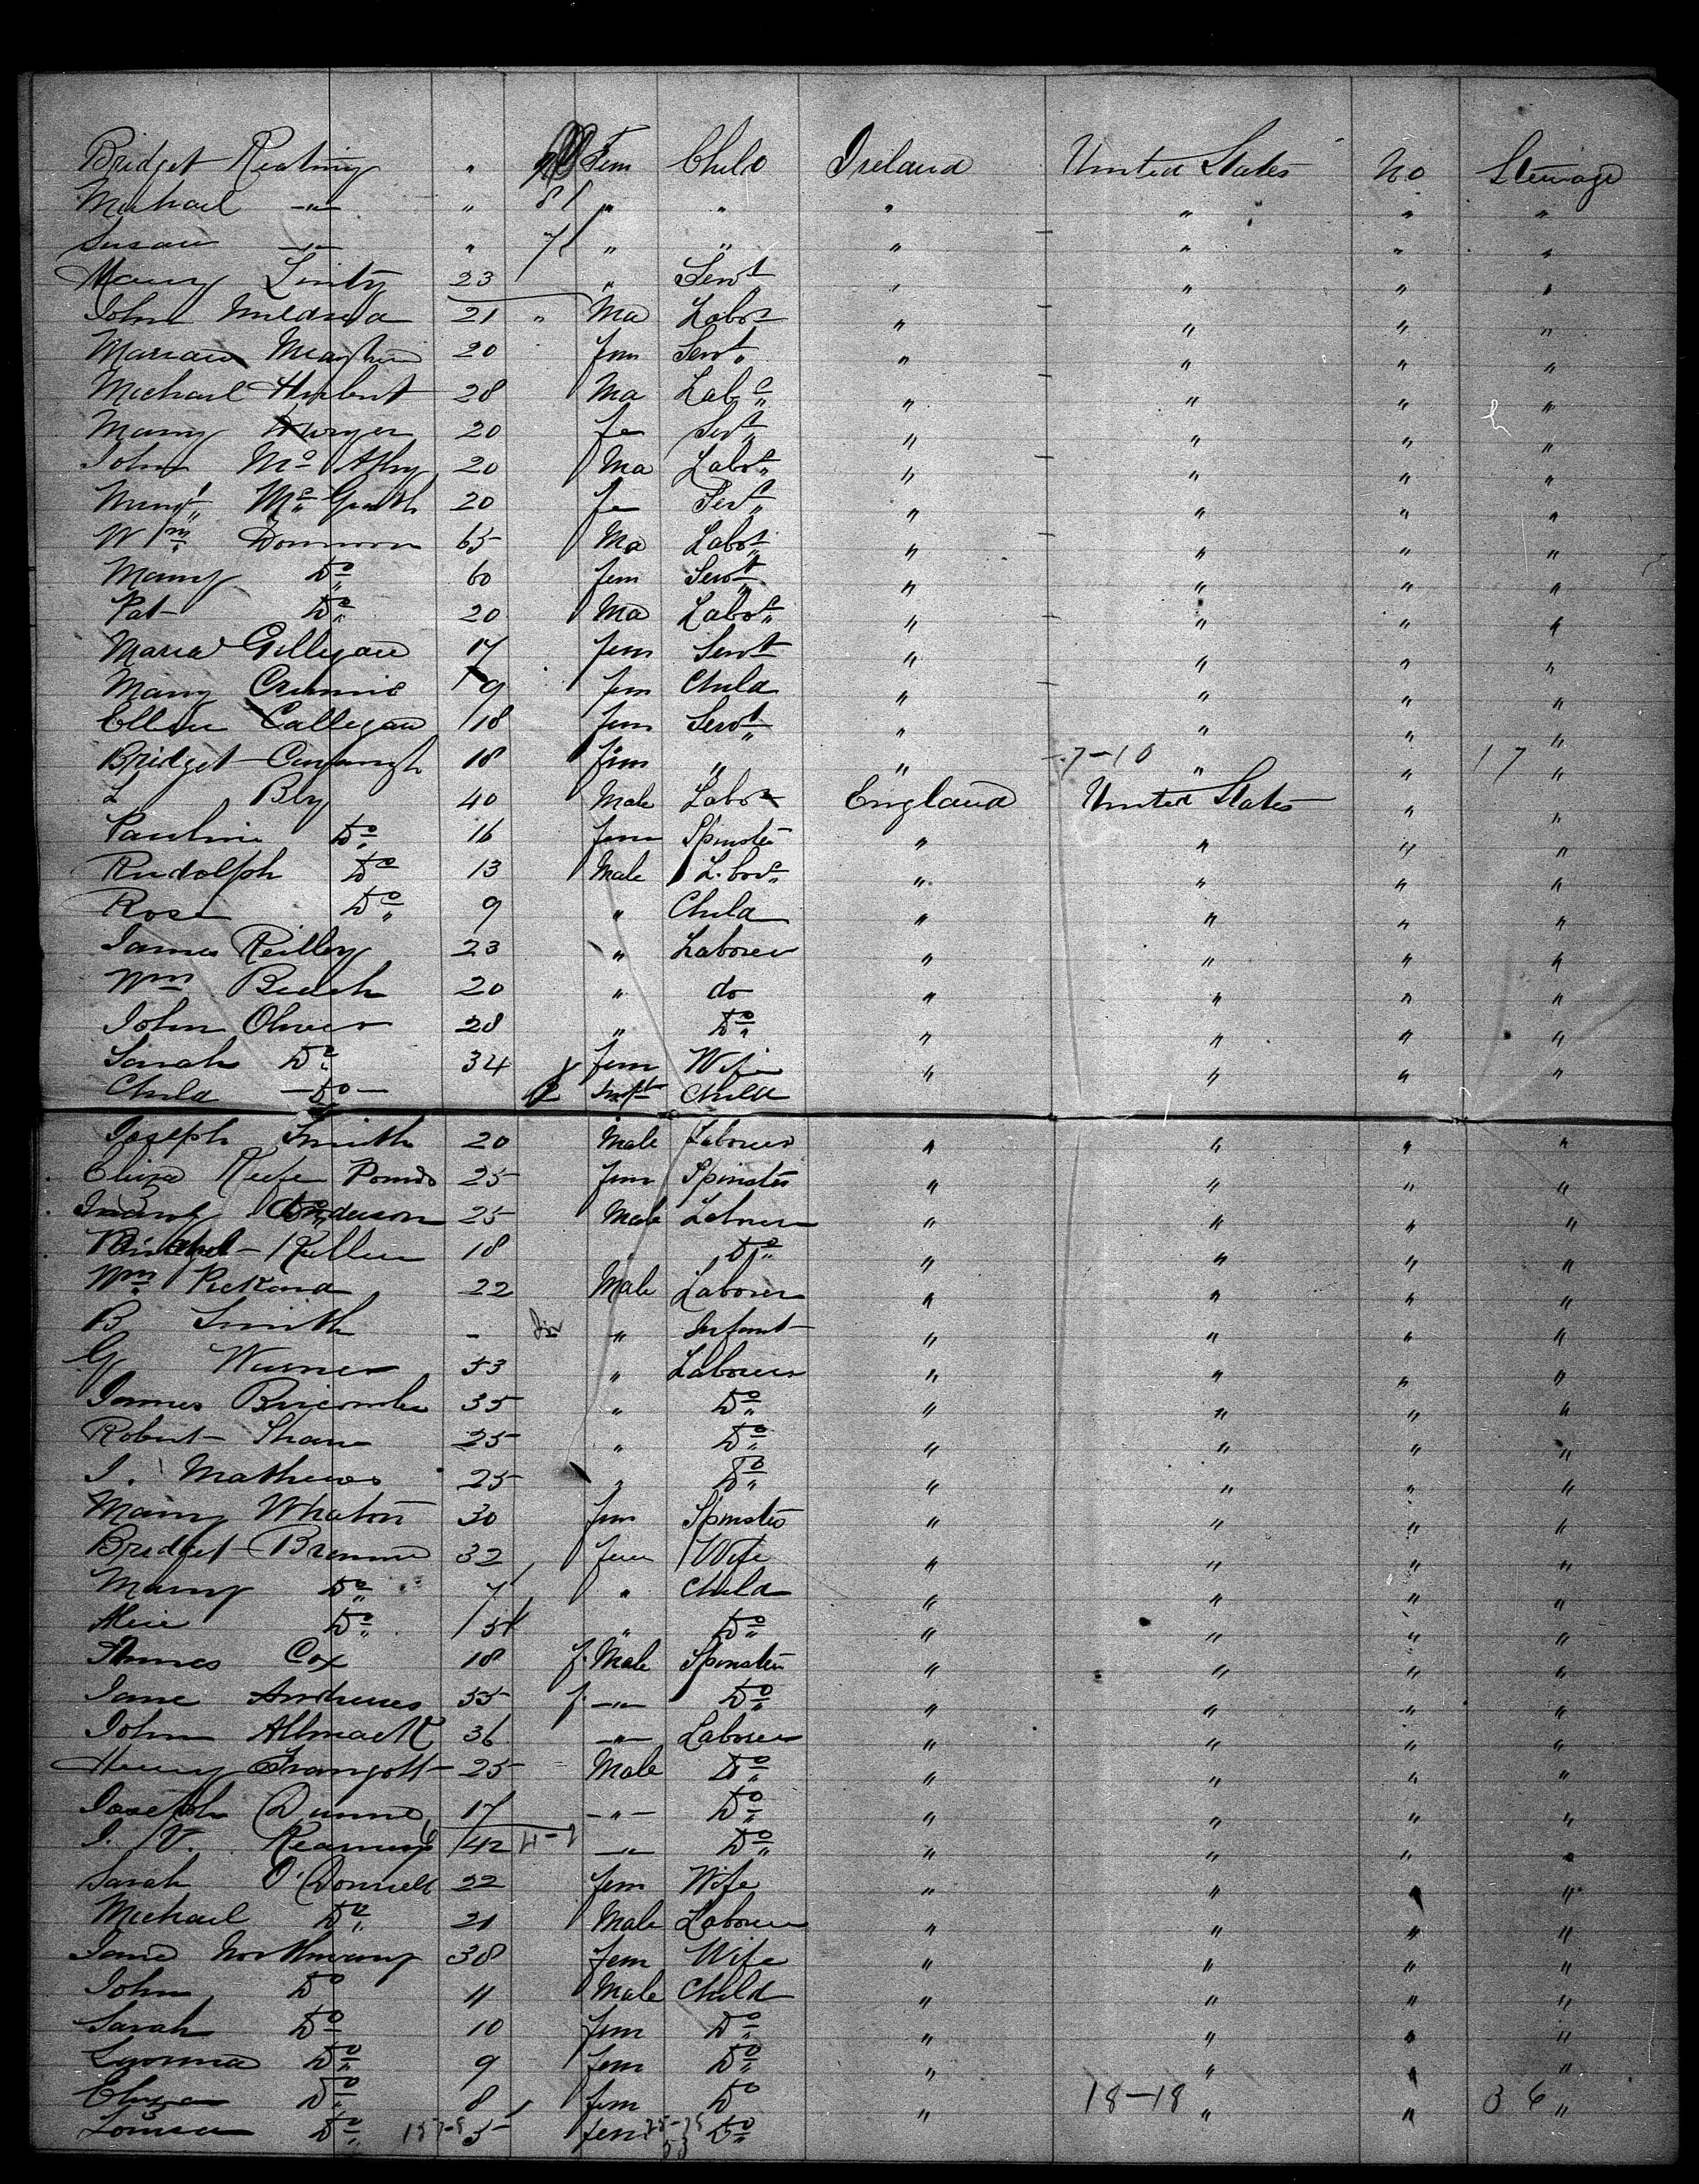 Bridget Keating " Fem Child Ireland United States No Steerage
Michael -"- " 8 " " " " " "
Susan -"- " 7 " " " " " "
Mary Linty 23 " Servt " " " "
John 21 " Ma Labor " " " "
20 Fem Servt " " " "
Michael Herbert 28 Ma Labr " " " "
Mary 20 Fe Servt " " " "
John Mc 20 Ma Labor " " " "
Mc Grath 20 Fe Servt " " " "
Wm 65 Ma Labor " " " "
Mary Do 60 Fem Servt " " " "
Pat Do 20 Ma Labor " " " "
Maria Gilligan 17 Fem Servt " " " "
Mary 9 Fem Child " " " "
Ellen Callegan 18 Fem Servt " " " "
Bridget Cavanagh 18 Fem " " 7-10 " " 17 "
L Bly 40 Male Labor England United States " "
Pauline Do 16 Fem Spinster " " " "
Rudolph Do 13 Male Labor " " " "
Rose Do 9 " Child " " " "
James Reilley 23 " Laborer " " " "
Wm Beech 20 " do " " " "
John Oliver 28 " Do " " " "
Sarah Do 34 Fem Wife " " " "
Child -Do- Inft Child
Joseph Smith 20 Male Laborer " " " "
Eliza Keefe 25 Fem Spinster " " " "
Anderson 25 Male Laborer " " " "
Killen 18 " Do " " " "
Wm Pickard 22 Male Laborer " " " "
B Smith - " Infant " " " "
G Warner 53 " Laborer " " " "
James Bircombe 35 " Do " " " "
Robert Shaw 25 " Do " " " "
J. Mathews 25 " Do " " " "
Mary Whaton 30 Fem Spinster " " " "
Bridget Brennan 32 Fem Wife " " " "
Mary Do 7 " Child " " " "
Do 5 " Do " " " "
Cox 18 f. Male Spinster " " " "
Jane Andrews 55 f. -"- Do " " " "
John Allmack 36 -"- Laborer " " " "
Henry 25 Male Do " " " "
Joseph Dunne 17 -"- Do " " " "
J. V. 42 -"- Do " " " "
Sarah O'Donnell 22 Fem Wife " " " "
Michael Do 21 Male Laborer " " " "
Jane 38 Fem Wife " " " "
John Do 11 Male Child " " " "
Sarah Do 10 Fem Do " " " "
Do 9 Fem Do " " " "
Eliza Do 8 Fem Do 18-18 " 36
Louisa Do 5 Fem Do " " " "